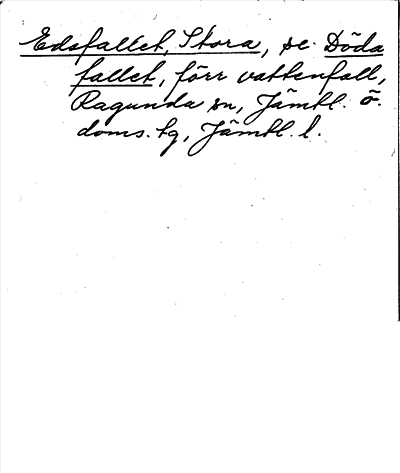 Edsfallet, Stora, se. Döda
fallet, förr vattenfall,
Ragunda sn, Jämtl. ö.
doms. tg, Jämtl. l.